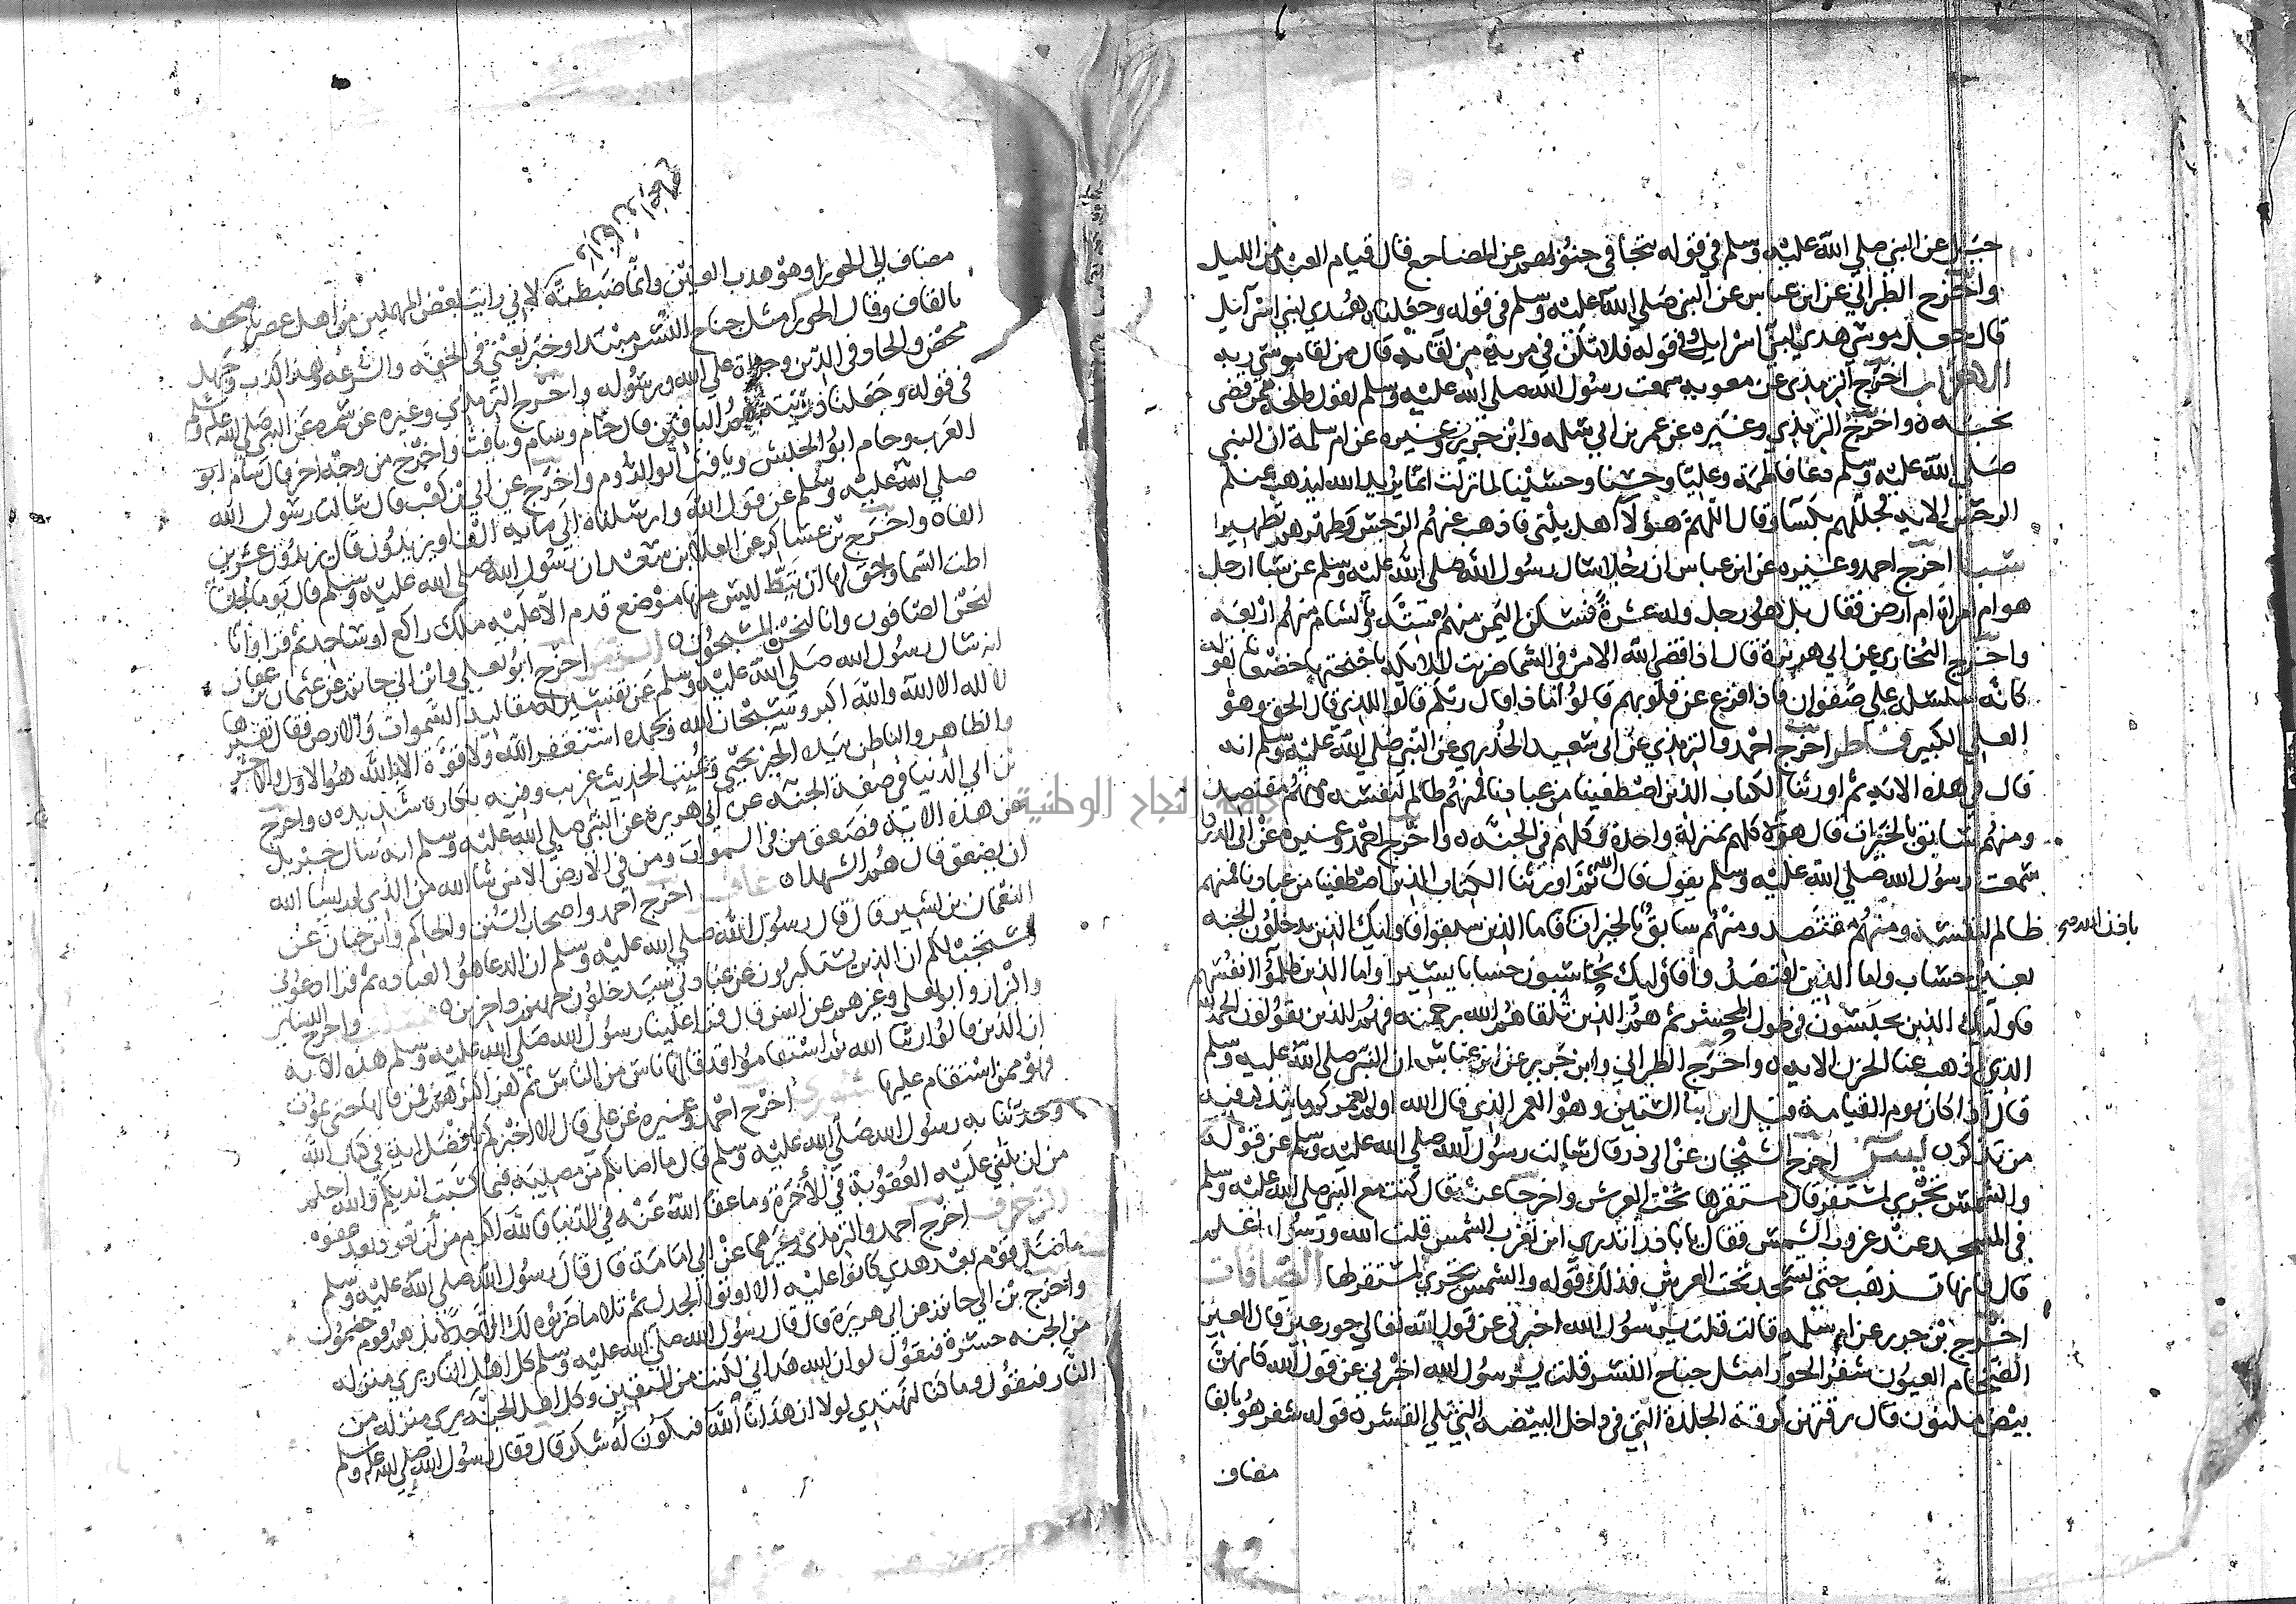 جبل عن النبي صلي الله عليه وسلم في قوله تتجافي جنوبهم عن المضاجع قال قيام العبد من الليل
واخرج الطبراني عن ابن عباس عن النبي صلي الله عليه وسلم في قوله وجعلناه هدي لبني اسرآئيل
قال جعل موسي هدي لبني اسرايل وفي قوله فلا تكن في مرية من لقايه قال من لقا موسي ربه
الاحزاب اخرج الترمذي عن معويه سمعت رسول الله صلي الله عليه وسلم يقول طلحة ممن قضي
نحبه ه واخرج الترمذي وغيره عن عمر بن ابي سلمه وابن جرير وغيره عن ام سلمة ان النبي
صلي الله عليه وسلم دعا فاطمة وعليا وحسنا وحسينا لما نزلت انما يريد الله ليذهب عنكم
الرجس الايه فجللهم بكسآ وقال اللهم هؤلآ اهل بيتي فاذهب عنهم الرجس وطهرهم تطهيرا
سبا اخرج احمد وغيره عن ابن عباس ان رجلا سال رسول الله صلي الله عليه وسلم عن سبا ارجل
هو ام امراة ام ارض فقال بل هو رجل ولد عشرة فسكن اليمن منهم ستة وبالشام منهم اربعه
واخرج البخاري عن ابي هريرة قال اذا قضي الله الامر في السما ضربت الملايكه باجنحتها خضعانا لقوله
كانه سلسله علي صفوان فاذا فزع عن قلوبهم قالوا ماذا قال ربكم قالوا للذي قال الحق وهو
العلي الكبير فاطر اخرج احمد والترمذي عن ابي سعيد الخدري عن النبي صلي الله عليه وسلم انه
قال في هذه الايه ثم اورثنا الكتاب الذين اصطفينا من عبادنا فمنهم ظالم لنفسه ومنهم مقتصد
ومنهم سابق بالخيرات قال هؤلا كلهم بمنزلة واحدة وكلهم في الجنه ه واخرج احمد وغيره عن ابي الدردا
سمعت رسول الله صلي الله عليه وسلم يقول قال الله ثم اورثنا الكتاب الذين اصطفينا من عبادنا فمنهم
ظالم لنفسه ومنهم مقتصد ومنهم سابق بالخيرات فاما الذين سبقوا فاوليك الذين يدخلون الجنه
باذن الله صح
بغير حساب واما الذين اقتصدوا فاوليك يحاسبون حسابا يسيرا واما الذين ظلموا انفسهم
فاوليك الذين يحبسون في طول المحشر ثم هم الذين تلقاهم الله برحمته فهم الذين يقولون الحمد لله
الذي اذهب عنا الحزن الايه ه واخرج الطبراني وابن جرير عن ابن عباس ان النبي صلي الله عليه وسلم
قال اذا كان يوم القيامة قيل اين ابنا الستين وهو العمر الذي قال الله اولم نعمركم ما يتذكر فيه
من تذكر ه يس اخرج الشيخان عن ابي ذر قال سالت رسول الله صلي الله عليه وسلم عن قوله
والشمس تجري لمستقر قال مستقرها تحت العرش واخرجا عنه قال كنت مع النبي صلي الله عليه وسلم
في المسجد عند غروب الشمس فقال يا باذر اتدري اين تغرب الشمس قلت الله ورسوله اعلم
قال فانها تذهب حتي تسجد تحت العرش فذلك قوله والشمس تجري لمستقر لها الصافات
اخرج بن جرير عن ام سلمه قالت قلت يرسول الله اخبرني عن قول الله تعالي حور عين قال العين
الضخام العيون شفر الحورا مثل جناح النسر قلت يرسول الله اخبرني عن قول الله كانهن
بيض مكنون قال رقتهن كرقة الجلدة التي في داخل البيضه التي تلي القشر ه قوله شفر هو بالفا
مضاف
مضاف الي الحورا وهو هدب العين وانما ضبطته لاني رايت بعض المهملين من اهل عصرنا صحفه
بالقاف وقال الحورا مثل جناح النسر مبتدا وخبر يعني في الخفه والسرعه وهذا كذب وجهل
محض والحاد في الدين وجراة علي الله ورسوله واخرج الترمذي وغيره عن سمره عن النبي صلي الله عليه وسلم
في قوله وجعلنا ذريته هم الباقين قال حام وسام ويافث واخرج من وجه اخر قال سام ابو
العرب وحام ابو الحبش ويافث ابو الروم واخرج عن ابي بن كعب قال سالت رسول الله
صلي الله عليه وسلم عن قول الله وارسلناه الي ماية الف او يزيدون قال يزيدون عشرين
الفا ه واخرج بن عساكر عن العلا بن سعد ان رسول الله صلي الله عليه وسلم قال يوما لجلسايه
اطت السما وحق لها ان تئط ليس منها موضع قدم الا عليه ملك راكع او ساجد ثم قرا وانا
لنحن الصافون وانا لنحن المسبحون ه الزمر اخرج ابو يعلي وابن ابي حاتم عن عثمان بن عفان
انه سال رسول الله صلي الله عليه وسلم عن تفسير له مقاليد السموات والارض فقال تفسيرها
لا اله الا الله والله اكبر وسبحان الله وبحمده استغفر الله ولا قوة الا بالله هو الاول والاخر
والظاهر والباطن بيده الخير يحيي ويميت الحديث غريب وفيه نكارة شديده ه واخرج
بن ابي الدنيا في صفة الجنة عن ابي هريره عن النبي صلي الله عليه وسلم انه سال جبريل
عن هذه الايه فصعق من في السموات ومن في الارض الا من شا الله من الذي لم يشا الله
ان يصعق قال هم الشهدا ه غافر اخرج احمد واصحاب السنن والحاكم وابن حبان عن
النعمان بن بشير قال قال رسول الله صلي الله عليه وسلم ان الدعا هو العباده ثم قرا ادعوني
استجب لكم ان الذين يستكبرون عن عبادتي سيدخلون جهنم داخرين ه فصلت واخرج النساي
والبزار وابو يعلي وغيرهم عن انس قال قرا علينا رسول الله صلي الله عليه وسلم هذه الايه
ان الذين قالوا ربنا الله ثم استقاموا قد قالها ناس من الناس ثم كفر اكثرهم فمن قالها حتي يموت
فهو ممن استقام عليها شوري اخرج احمد وغيره عن علي قال الا اخبركم بافضل اية في كتاب الله
وحدثنا به رسول الله صلي الله عليه وسلم قال ما اصابكم من مصيبه فبما كسبت ايديكم والله احلم
من ان يثني عليه العقوبة في الاخرة وما عفا الله عنه في الدنيا فالله اكرم من ان يعود بعد عفوه
الزخرف اخرج احمد والترمذي وغيرهما عن ابي امامة قال قال رسول الله صلي الله عليه وسلم
ما ضل قوم بعد هدي كانوا عليه الا اوتوا الجدل ثم تلا ما ضربوه لك الا جدلا بل هم قوم خصمون
واخرج بن ابي حاتم عن ابي هريرة قال قال رسول الله صلي الله عليه وسلم كل اهل النار يري منزله
من الجنه حسرة فيقول لو ان الله هداني لكنت من المتقين وكل اهل الجنه يري منزله من
النار فيقول وما كنا لنهتدي لولا ان هدانا الله فيكون له شكر قال وقال رسول الله صلي الله عليه وسلم
جامعة النجاح الوطنية